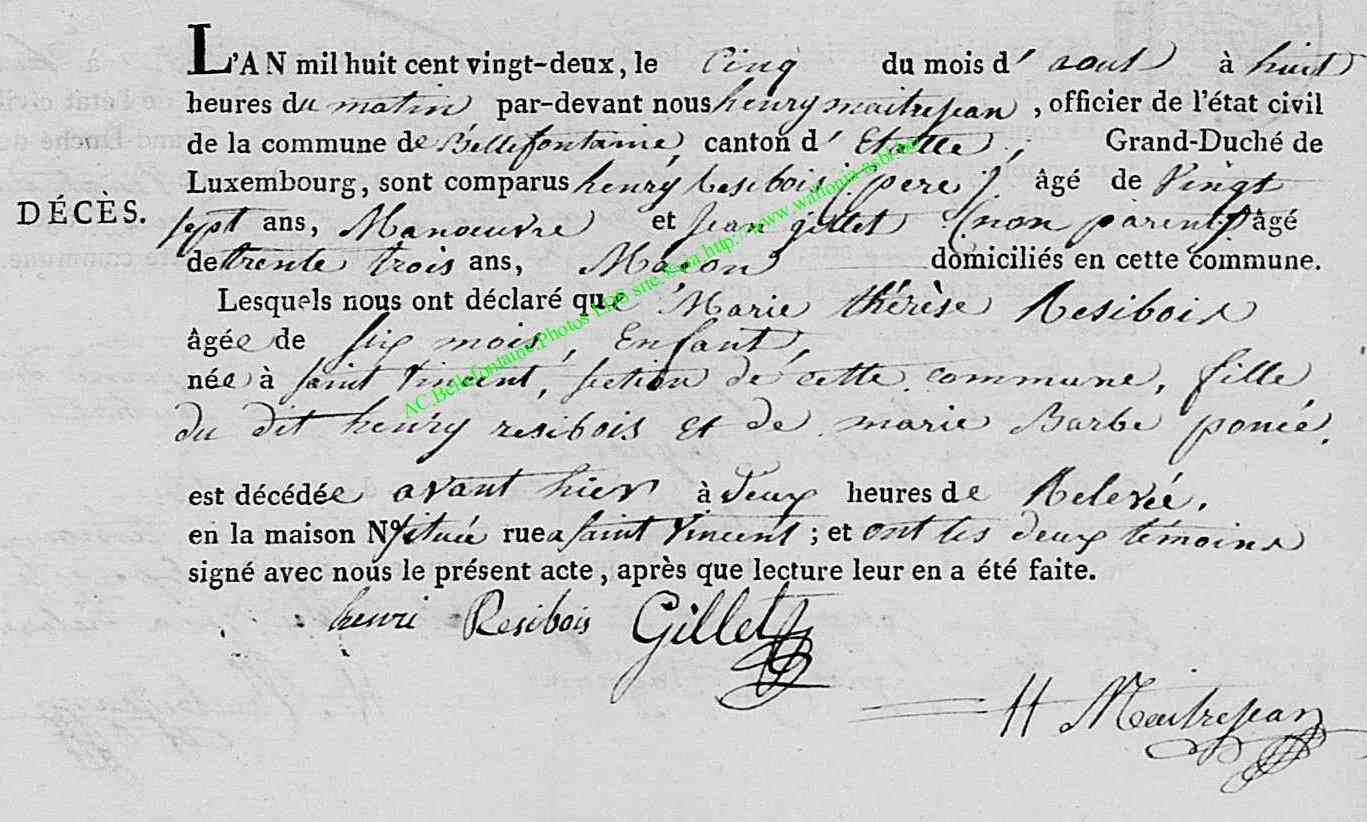 L'AN mil huit cent vingt-deux, le Cinq du mois d' aout à huit
heures du matin par-devant nous henry maitrejean, officier de l'état civil
de la commune de Bellefontaine, canton d' Etalle, Grand-Duché de
Luxembourg, sont comparus henry Resibois (pere) âgé de Vingt
DÉCÈS.
sept ans, Manœuvre et Jean gillet (non parent) âgé
de trente trois ans, Macon domiciliés en cette commune.
Lesquels nous ont déclaré que Marie thérèse Resibois
âgée de six mois, Enfant,
née à saint Vincent, section de cette commune, fille
du dit henry resibois et de marie Barbe poncé,
est décédée avant hier à deux heures de Relevée,
en la maison No située rue a saint Vincent ; et ont les deux témoins
signé avec nous le présent acte, après que lecture leur en a été faite.
henri Resibois Gillet
H Maitrejean
AC Bellefontaine Photos site via http://www